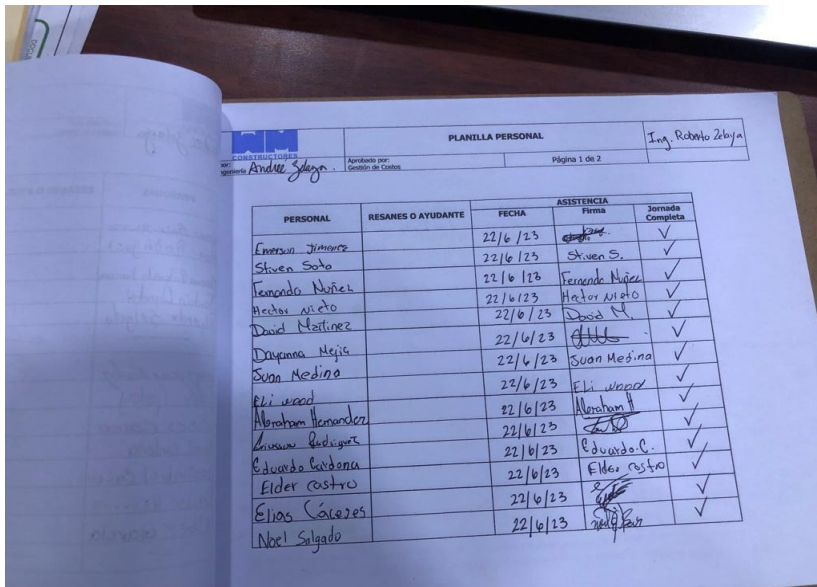 CONSTRUCTORES
PLANILLA PERSONAL
Ing. Roberto Zelaya
por:
Andree Zelaya.
Aprobado por:
Gestión de Costos
Página 1 de 2
PERSONAL RESANES O AYUDANTE ASISTENCIA
FECHA Firma Jornada Completa
Emerson Jimenez 22/6/23 ✓
Stiven Soto 22/6/23 Stiven S. ✓
Fernando Nuñez 22/6/23 Fernando Nuñez ✓
Hector Nieto 22/6/23 Hector Nieto ✓
David Martinez 22/6/23 David M. ✓
Dayanna Mejia 22/6/23 ✓
Juan Medina 22/6/23 Juan Medina ✓
Eli wood 22/6/23 Eli wood ✓
Abraham Hernandez 22/6/23 Abraham H ✓
Rodriguez 22/6/23 ✓
Eduardo Cardona 22/6/23 Eduardo.C. ✓
Elder castro 22/6/23 Elder castro ✓
Elias Cáceres 22/6/23 ✓
Noel Salgado 22/6/23 ✓